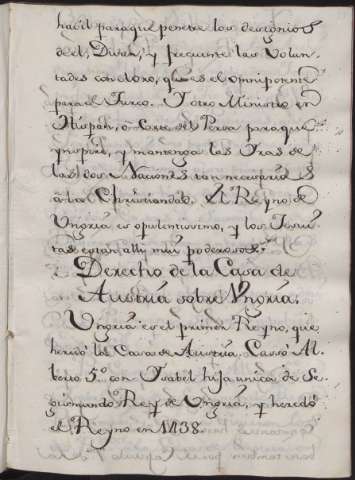 habil paraque penetre los designios
de el, Divan, y frequente las Volun-
tades con el oro, que es el omnipotente
para el Turco. Y otro Ministro en
Hispan, o Corte de Persa para que
ynspire, y mantenga las Iras de
las dos Naciones tan necesarias
a la Christiandad. El Reyno de
Ungria es opulentissimo, y los Jesui-
tas estan alli mui poderosos.
Derecho de la Casa de
Austria sobre Ungria.
Ungria es el primer Reyno, que
heredó la Casa de Austria. Cassó Al-
berto 5º con Isabel hija unica de Se-
gismundo Rey de Ungria, y heredó
el Reyno en 1438.